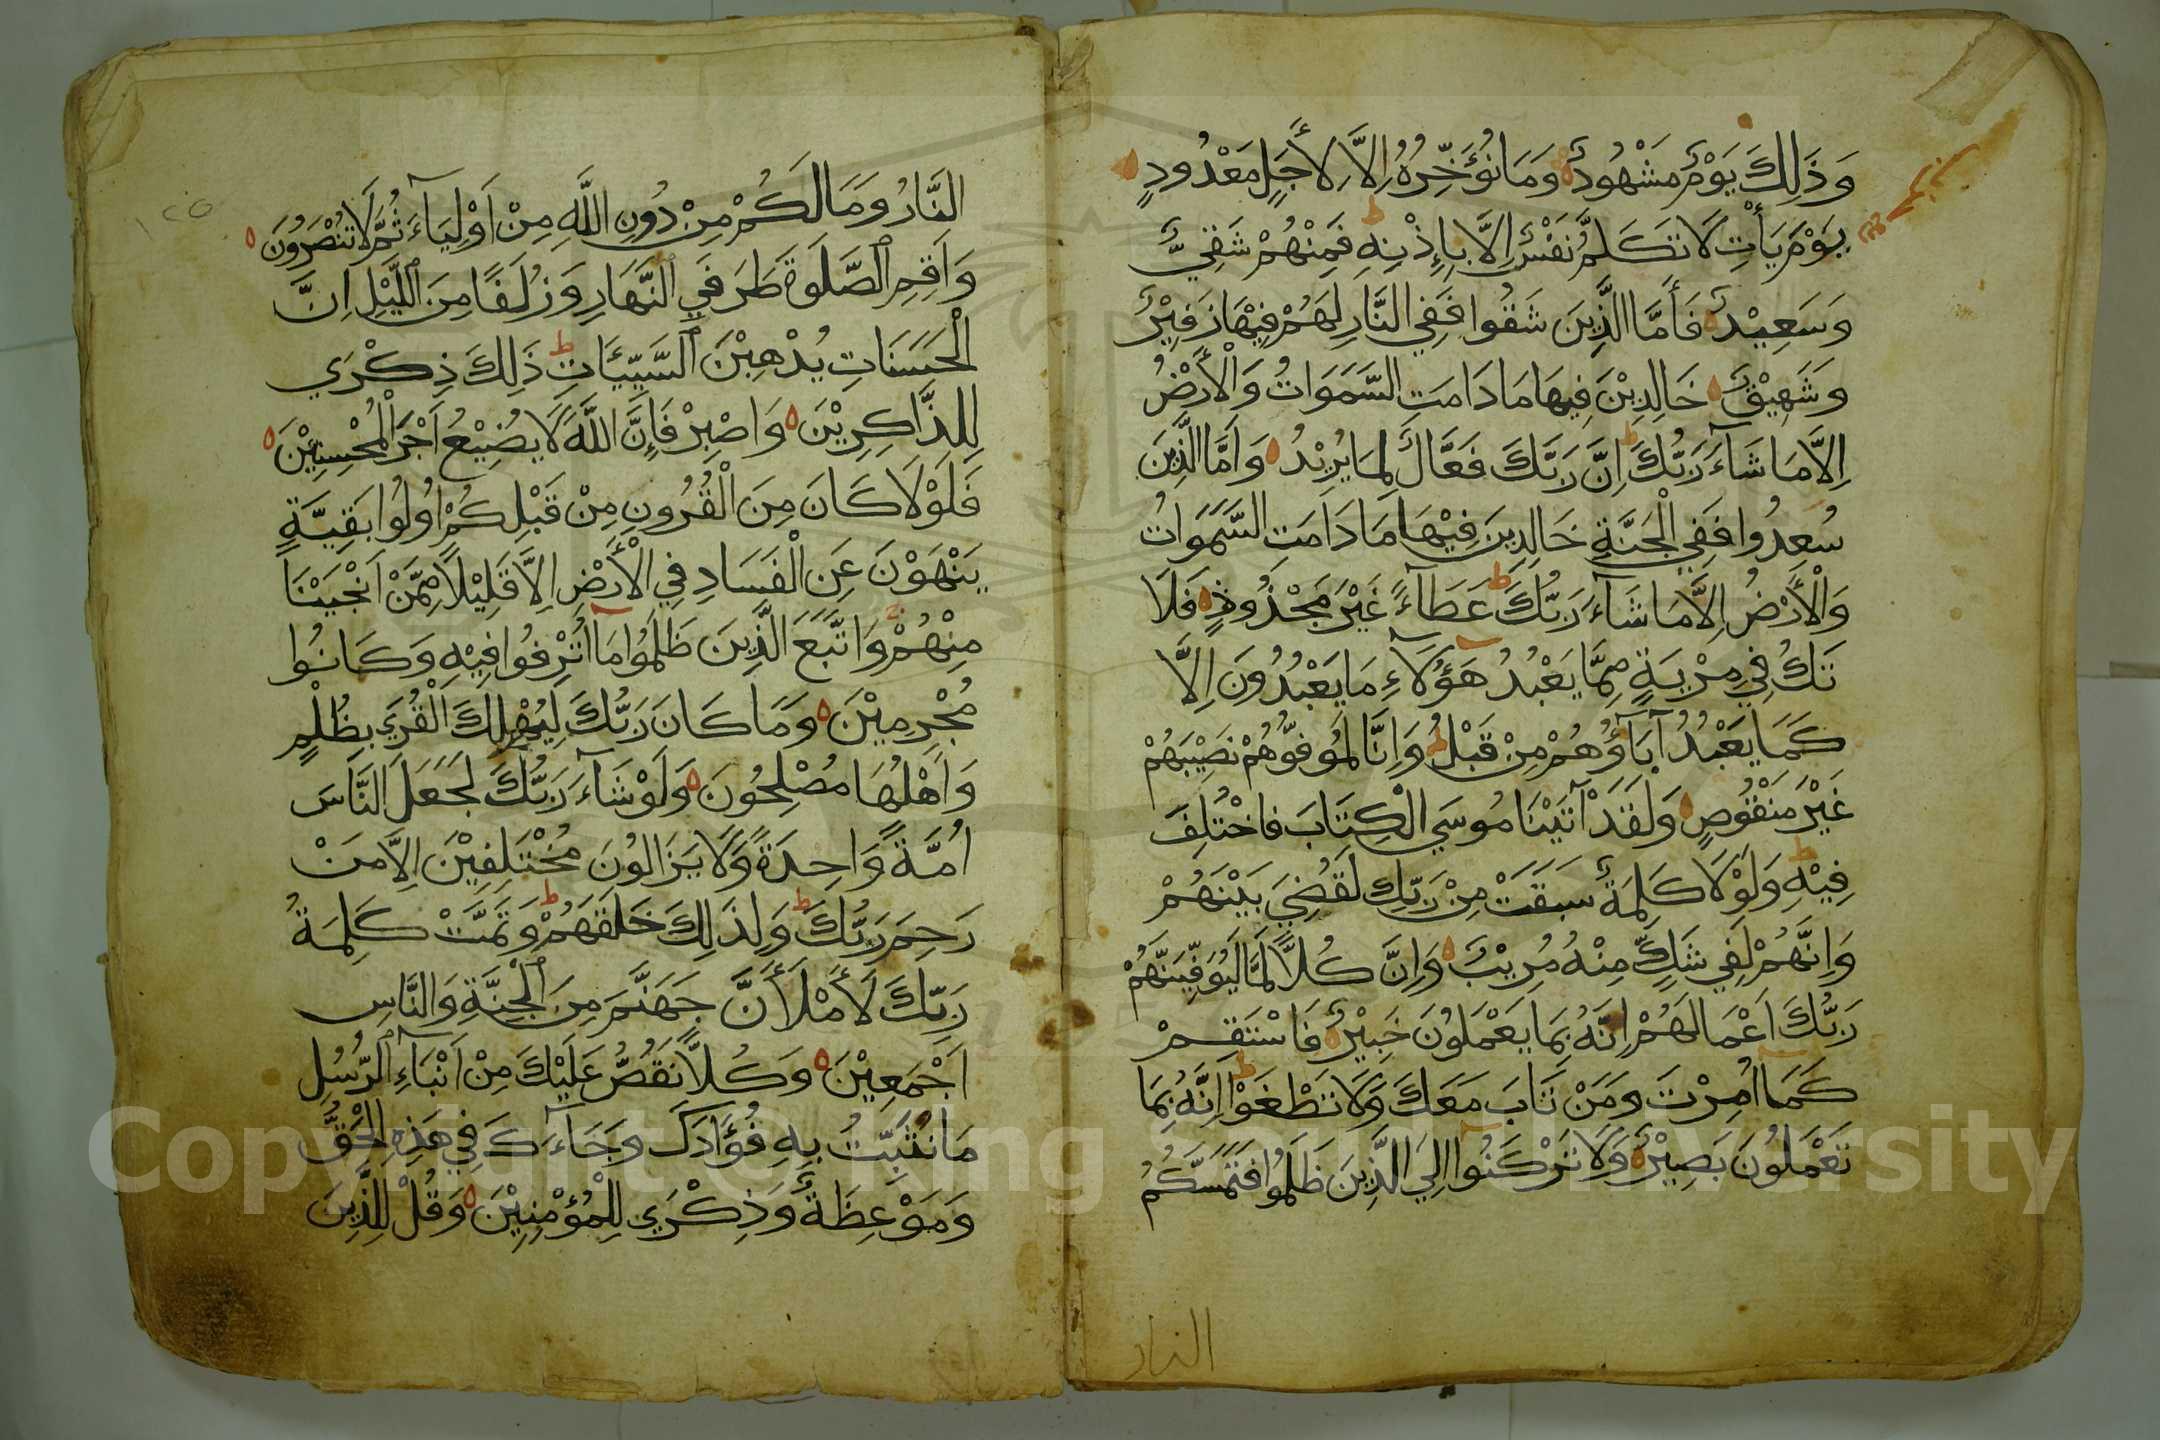 وَذَلِكَ يَوْمٌ مَشْهُودٌ وَمَا نُؤَخِّرُهُ اِلاَّ لِأَجَلٍ مَعْدُودٍ
يَوْمَ يَأْتِ لَا تَكَلَّمُ نَفْسٌ اِلَّا بِإِذْنِهِ فَمِنْهُمْ شَقِيٌّ
وَسَعِيْدٌ فَأَمَّا الَّذِينَ شَقُوا فَفِي النَّارِ لَهُمْ فِيْهَا زَفِيْرٌ
وَشَهِيْقٌ خَالِدِيْنَ فِيهَا مَا دَامَتِ السَّمَوَاتُ وَالْأَرْضُ
اِلاَّ مَا شَآءَ رَبُّكَ اِنَّ رَبَّكَ فَعَّالٌ لِمَا يُرِيْدُ وَاَمَّا الَّذِينَ
سُعِدُوا فَفِي الْجَنَّةِ خَالِدِينَ فِيْهَا مَا دَامَتِ السَّمَوَاتُ
وَالْأَرْضُ اِلاَّ مَا شَآءَ رَبُّكَ عَطَآءً غَيْرَ مَجْذُوذٍ فَلَا
تَكُ فِي مِرْيَةٍ مِمَّا يَعْبُدُ هَؤُلَآءِ مَا يَعْبُدُونَ اِلَّا
كَمَا يَعْبُدُ آبَآؤُهُمْ مِنْ قَبْلُ وَاِنَّا لَمُوَفُّوهُمْ نَصِيْبَهُمْ
غَيْرَ مَنْقُوصٍ وَلَقَدْ آتَيْنَا مُوسَي الْكِتَابَ فَاخْتُلِفَ
فِيْهِ وَلَوْلَا كَلِمَةٌ سَبَقَتْ مِنْ رَبِّكَ لَقُضِيَ بَيْنَهُمْ
وَاِنَّهُمْ لَفِي شَكٍّ مِنْهُ مُرِيْبٍ وَاِنَّ كُلاًّ لَمَّا لَيُوَفِّيَنَّهُمْ
رَبُّكَ اَعْمَالَهُمْ اِنَّهُ بِمَا يَعْمَلُونَ خَبِيْرٌ فَاسْتَقِمْ
كَمَآ اُمِرْتَ وَمَنْ تَابَ مَعَكَ وَلَا تَطْغَوْا اِنَّهُ بِمَا
تَعْمَلُونَ بَصِيْرٌ وَلَا تَرْكَنُوآ اِلَي الَّذِينَ ظَلَمُوا فَتَمَسَّكُمُ
النار
النَّارُ وَمَا لَكُمْ مِنْ دُونِ اللَّهِ مِنْ اَوْلِيَآءَ ثُمَّ لَا تُنْصَرُونَ
وَاَقِمِ ٱلصَّلَوةَ طَرَفَيِ ٱلنَّهَارِ وَزُلَفًا مِنَ ٱللَّيْلِ اِنَّ
الْحَسَنَاتِ يُذْهِبْنَ ٱلسَّيِّئَاتِ ذَلِكَ ذِكْرَي
لِلذَّاكِرِيْنَ وَاصْبِرْ فَإِنَّ اللَّهَ لَا يُضِيْعُ اَجْرَ الْمُحْسِنِيْنَ
فَلَوْلَا كَانَ مِنَ الْقُرُونِ مِنْ قَبْلِكُمْ اُولُوا بَقِيَّةٍ
يَنْهَوْنَ عَنِ الْفَسَادِ فِي الْأَرْضِ اِلَّا قَلِيْلًا مِمَّنْ اَنْجَيْنَا
مِنْهُمْ وَاتَّبَعَ الَّذِينَ ظَلَمُوا مَآ اُتْرِفُوا فِيْهِ وَكَانُوا
مُجْرِمِيْنَ وَمَا كَانَ رَبُّكَ لِيُهْلِكَ الْقُرَي بِظُلْمٍ
وَاَهْلُهَا مُصْلِحُونَ وَلَوْ شَآءَ رَبُّكَ لَجَعَلَ النَّاسَ
اُمَّةً وَاحِدَةً وَلَا يَزَالُونَ مُخْتَلِفِيْنَ اِلاَّ مَنْ
رَحِمَ رَبُّكَ وَلِذَلِكَ خَلَقَهُمْ وَتَمَّتْ كَلِمَةُ
رَبِّكَ لَأَمْلَأَنَّ جَهَنَّمَ مِنَ ٱلْجِنَّةِ وَالنَّاسِ
اَجْمَعِيْنَ وَكُلاًّ نَقُصُّ عَلَيْكَ مِنْ اَنْبَآءِ ٱلرُّسُلِ
مَا نُثَبِّتُ بِهِ فُؤَادَكَ وَجَآءَكَ فِي هَذِهِ الْحَقُّ
وَمَوْعِظَةٌ وَذِكْرَي لِلْمُؤْمِنِيْنَ وَقُلْ لِلَّذِينَ